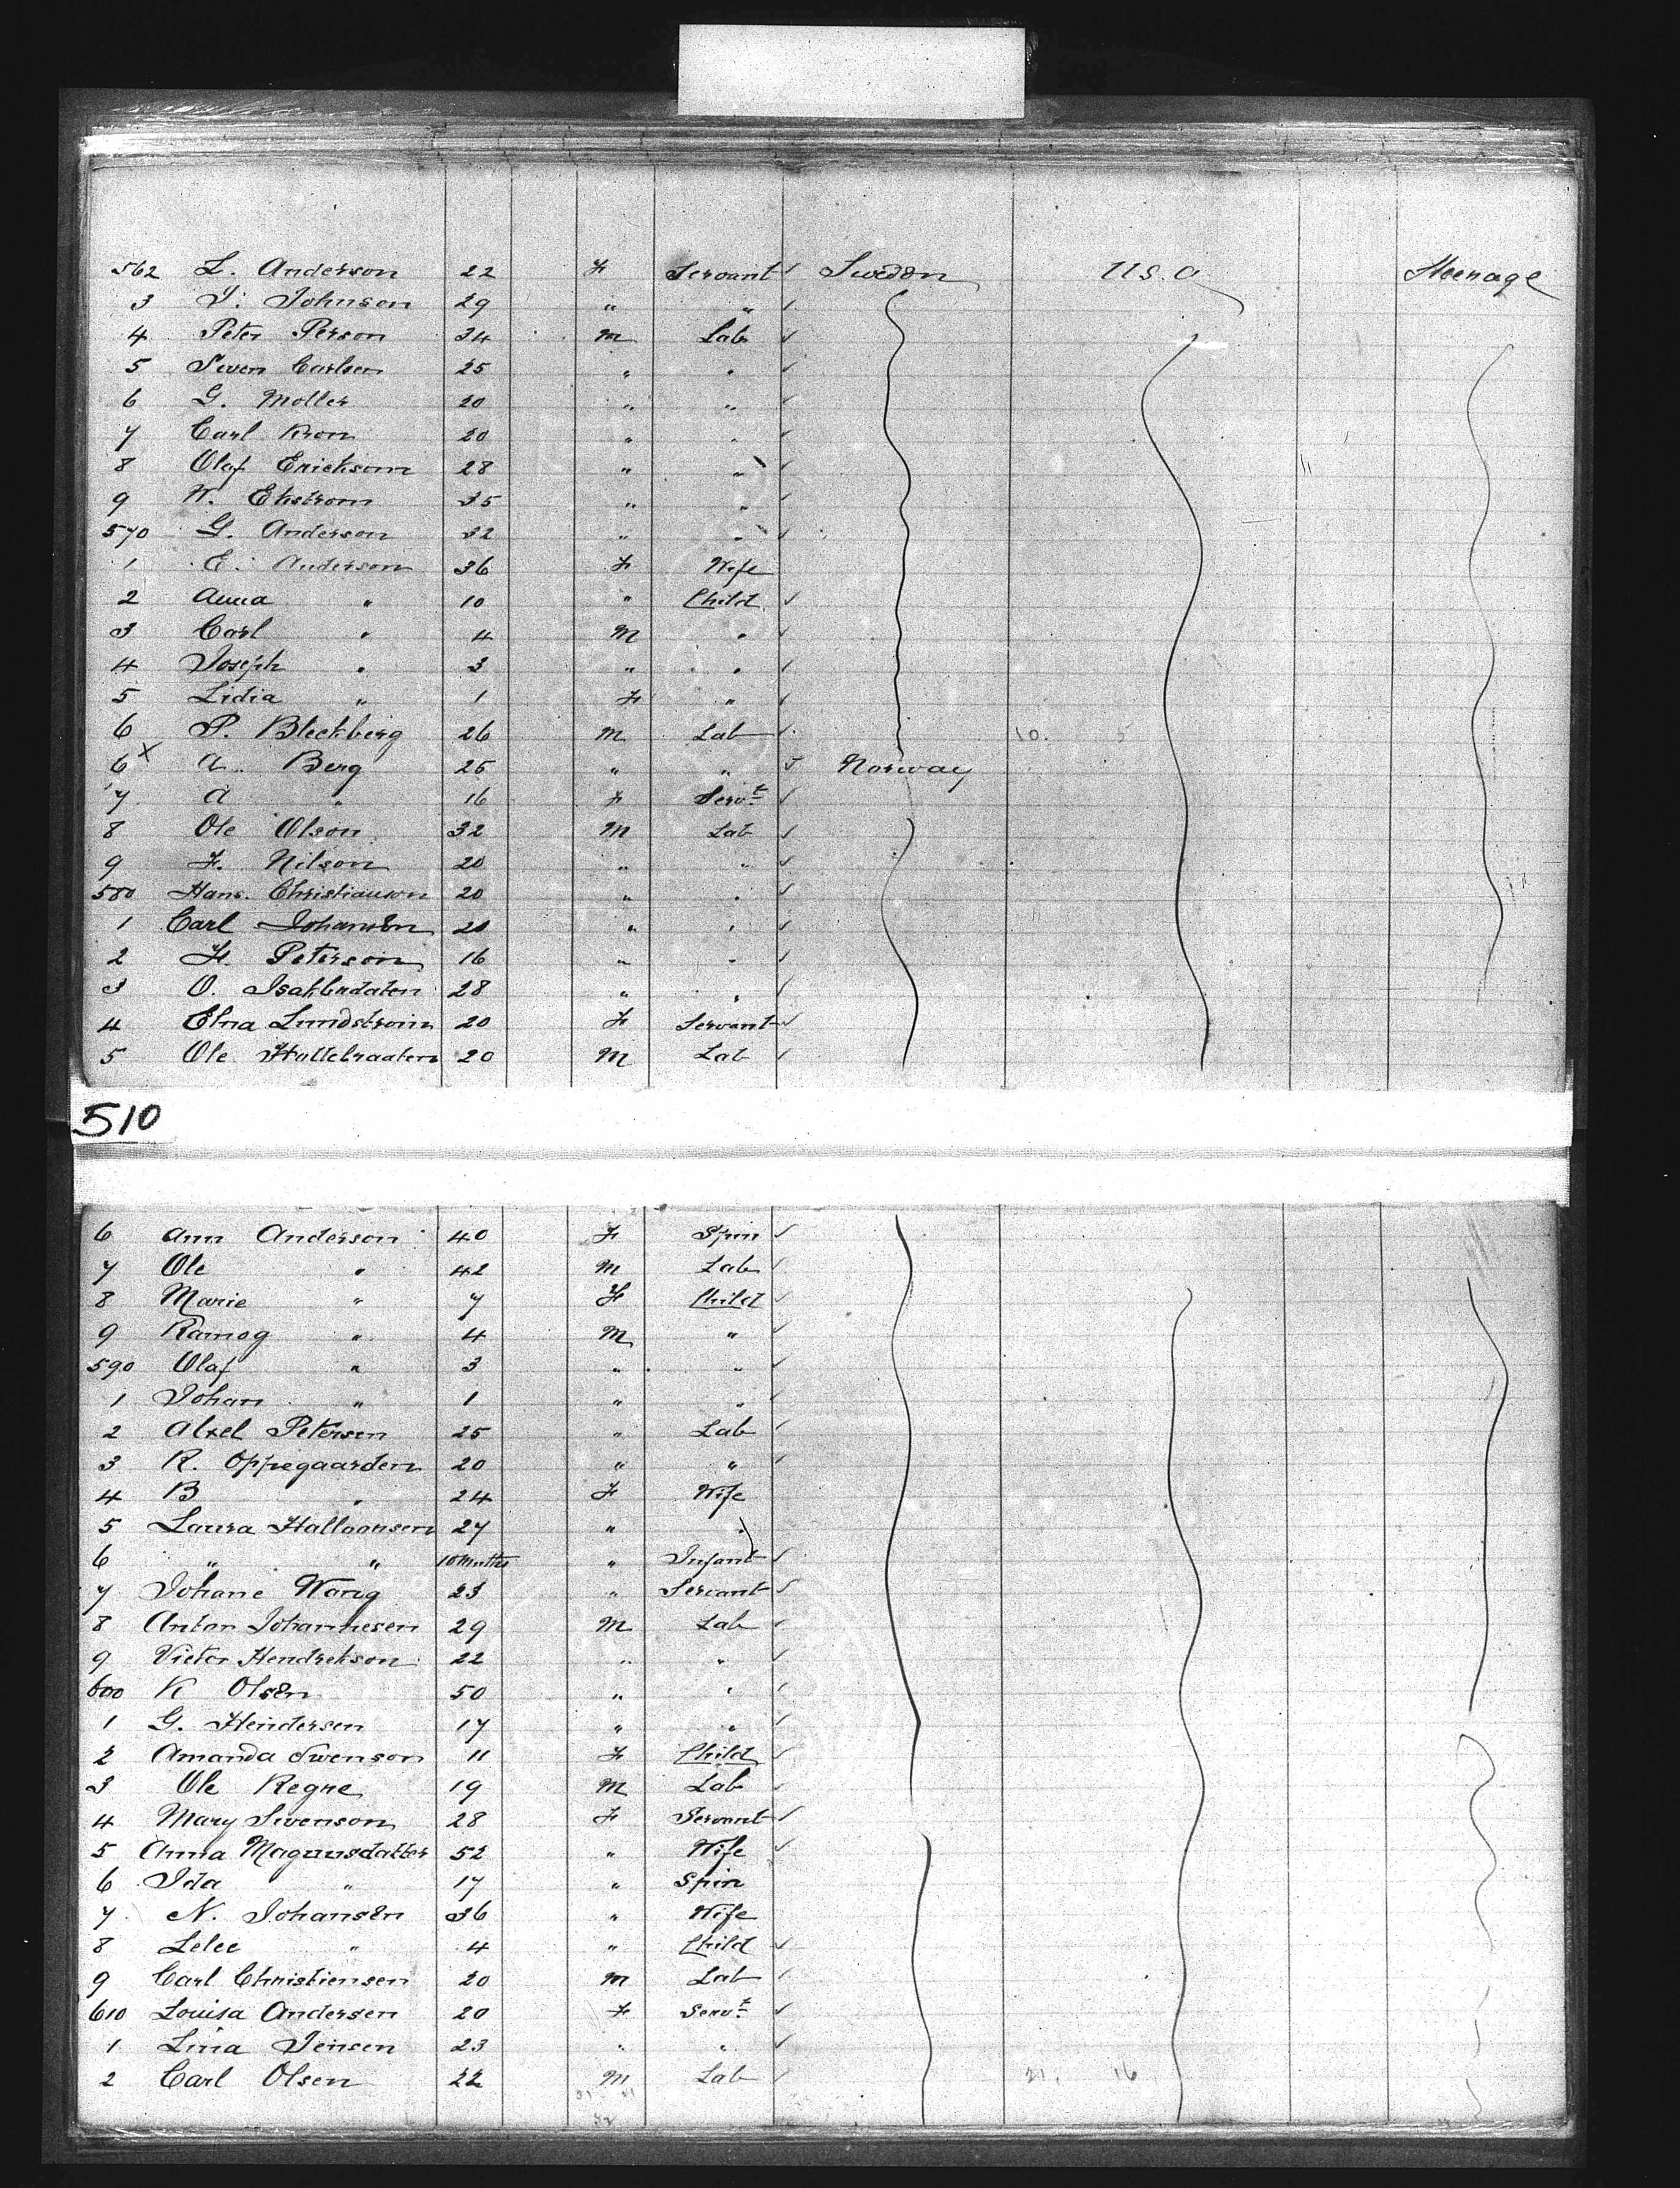 562 L. Anderson 22 F Servant ✓ Sweden U.S.A Steerage
3 I. Johnson 29 " " ✓
4 Peter Person 34 M Lab ✓
5 Swen Carlsen 25 " " ✓
6 G. Moller 20 " " ✓
7 Carl Kron 20 " " ✓
8 Olaf Erickson 28 " " ✓
9 W. Ekstrom 35 " " ✓
570 G. Anderson 32 " " ✓
1 E. Anderson 36 F Wife
2 Anna " 10 " Child ✓
3 Carl " 4 M " ✓
4 Joseph " 3 " " ✓
5 Lidia " 1 F " ✓
6 P. Bleckberg 26 M Lab ✓ 10. 5
6 x A. Berg 25 " " ✓ Norway
7 A " 16 F Servt ✓
8 Ole Olson 32 M Lab ✓
9 F. Nilson 20 " " ✓
580 Hans. Christianson 20 " " ✓
1 Carl Johansen 20 " " ✓
2 F. Peterson 16 " " ✓
3 O. 28 " " ✓
4 Elna Lundstrom 20 F Servant ✓
5 Ole 20 M Lab ✓
510
6 Ann Anderson 40 F Spin ✓
7 Ole " 42 M Lab ✓
8 Marie " 7 F Child ✓
9 Ramog " 4 M " ✓
590 Olaf " 3 " " ✓
1 Johan " 1 " " ✓
2 Alxel Petersen 25 " Lab ✓
3 R. Oppegaarden 20 " " ✓
4 B " 24 F Wife
5 Laura Halloansen 27 " "
6 " " 10 Months " Infant ✓
7 Johane Wang 23 " Servant ✓
8 Anton Johannesen 29 M Lab ✓
9 Victor Hendrekson 22 " " ✓
600 K Olsen 50 " " ✓
1 G. Hendersen 17 " " ✓
2 Amanda Swenson 11 F Child ✓
3 Ole Regne 19 M Lab ✓
4 Mary Swenson 28 F Servant ✓
5 Anna Magnusdatter 52 " Wife ✓
6 Ida " 17 " Spin
7 N. Johansen 36 " Wife
8 Lelee " 4 " Child ✓
9 Carl Christiensen 20 M Lab ✓
610 Louisa Andersen 20 F Servt ✓
1 Lina Jensen 23 " " ✓
2 Carl Olsen 22 M Lab ✓ 21. 16